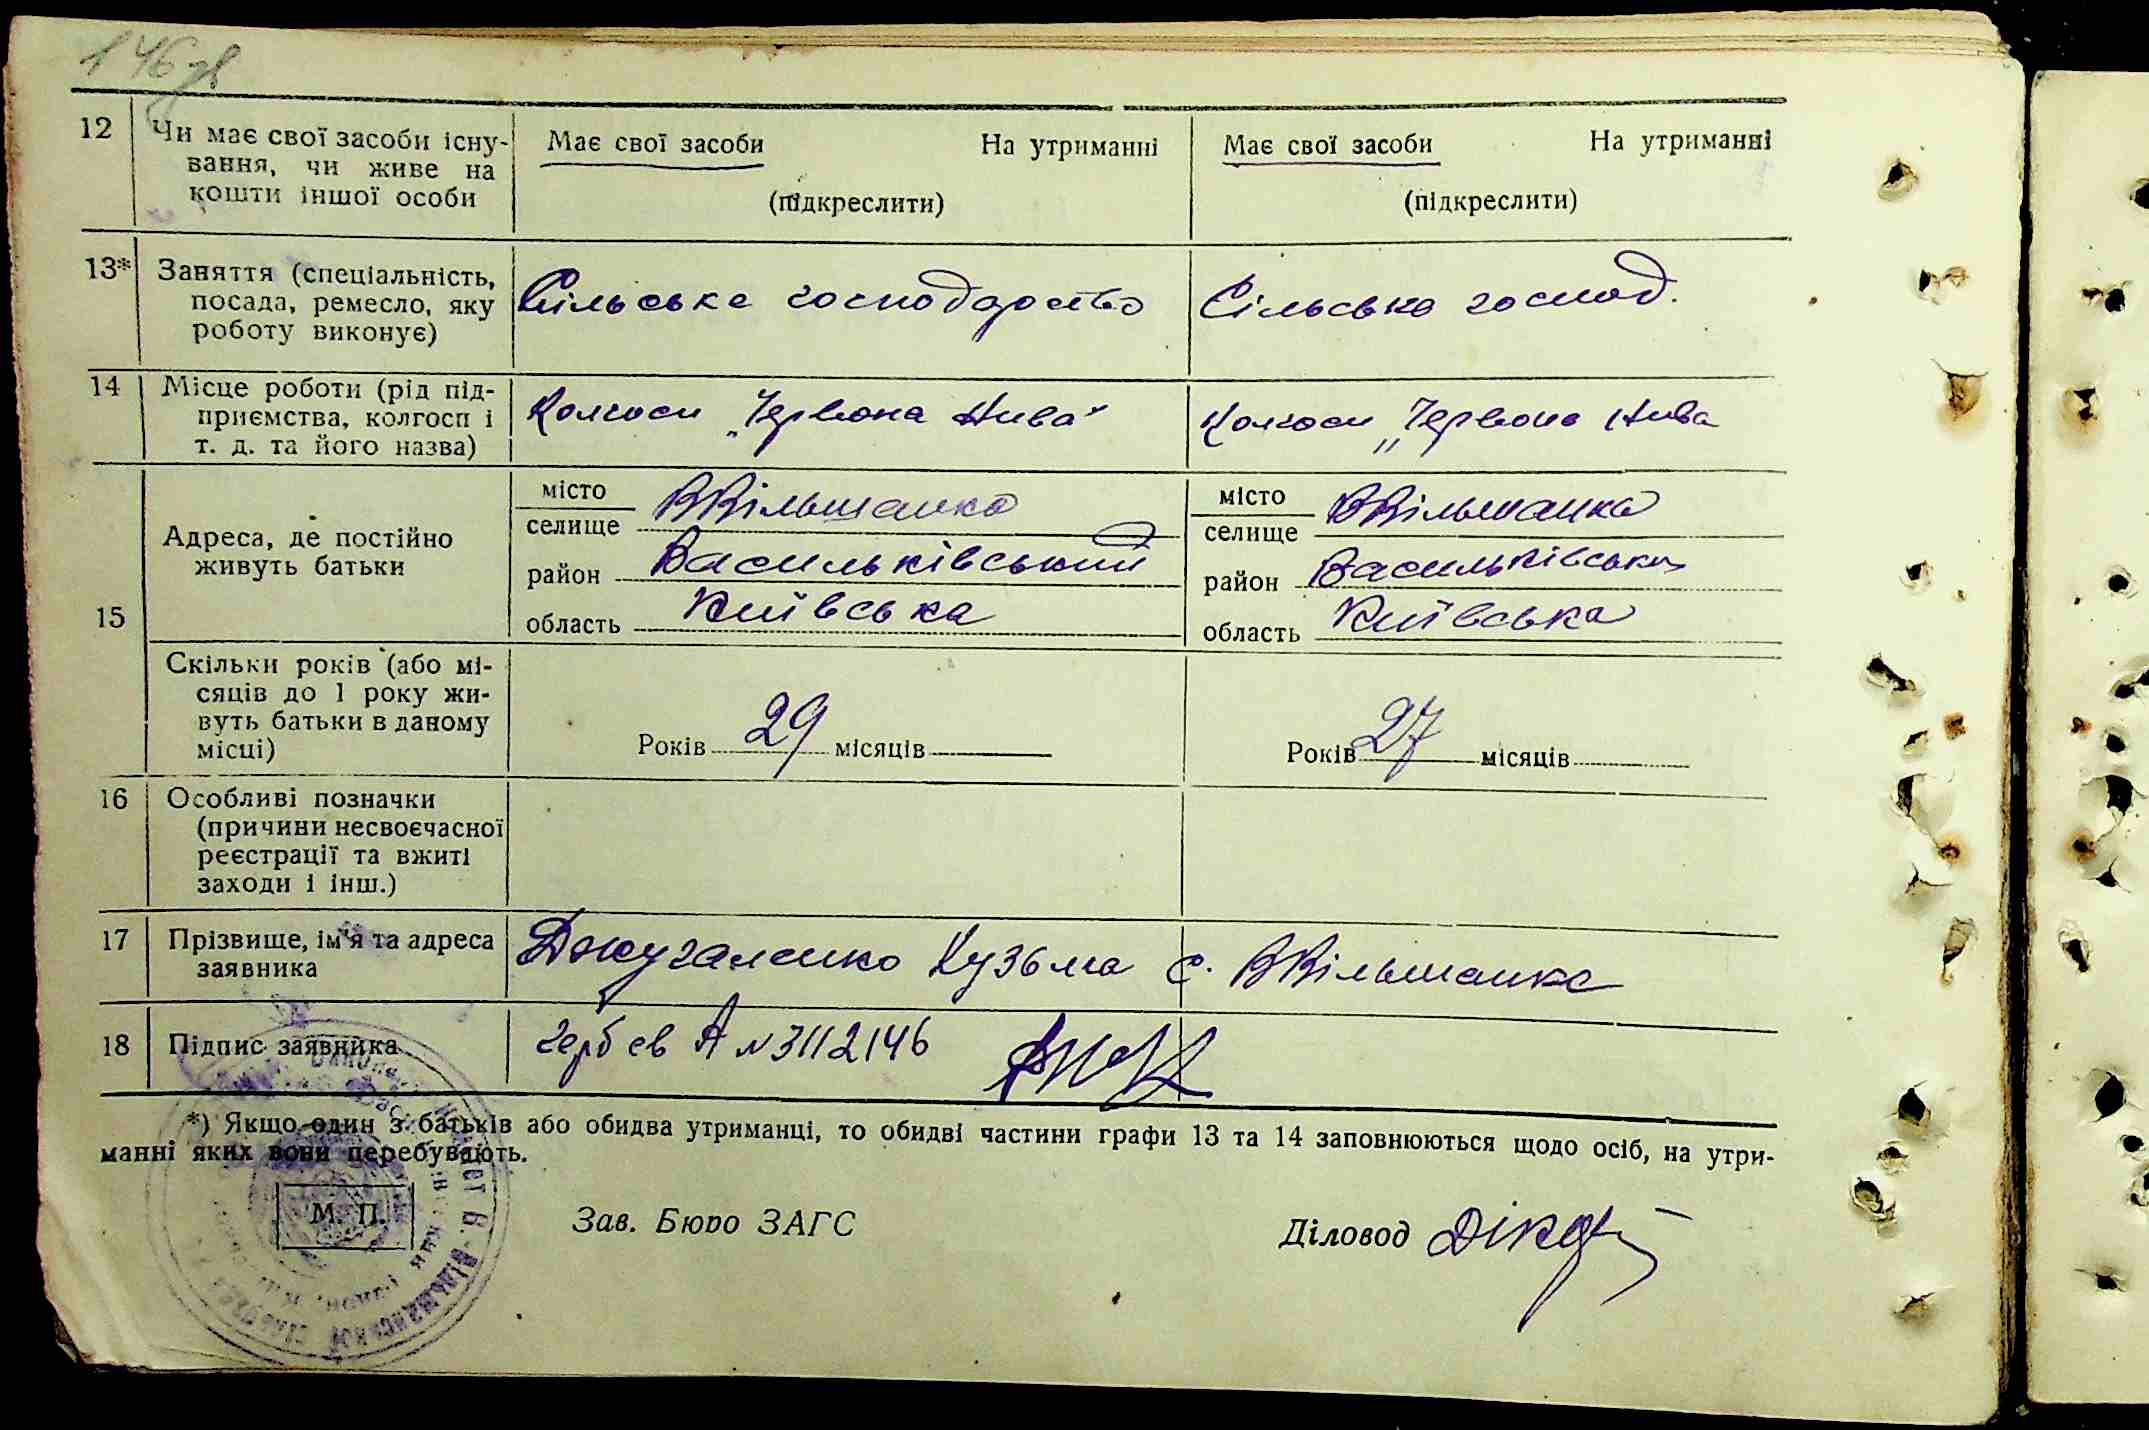 146 зв
12 Чи має свої засоби існу- Має свої засоби На утриманні Має свої засоби На утриманні
вання, чи живе на
кошти іншої особи (підкреслити) (підкреслити)
13* Заняття (спеціальність,
посада, ремесло, яку Сільське господарство Сільське господ.
роботу виконує)
14 Місце роботи (рід під-
приємства, колгосп і Колгосп „Червона Нива" Колгосп „Червона Нива
т. д. та його назва)
15 Адреса, де постійно
живуть батьки
місто ВВільшанка місто ВВільшанка
селище селище
район Васильківський район Васильківськ
область Київська область Київська
Скільки років (або мі-
сяців до 1 року жи-
вуть батьки в даному
місці) Років 29 місяців Років 27 місяців
16 Особливі позначки
(причини несвоєчасної
реєстрації та вжиті
заходи і інш.)
17 Прізвище, ім'я та адреса Джугаленко Кузьма с. ВВільшанка
заявника
18 Підпис заявника А №3112146
*) Якщо один з батьків або обидва утриманці, то обидві частини графи 13 та 14 заповнюються щодо осіб, на утри-
манні яких вони перебувають.
М. П. Зав. Бюро ЗАГС Діловод